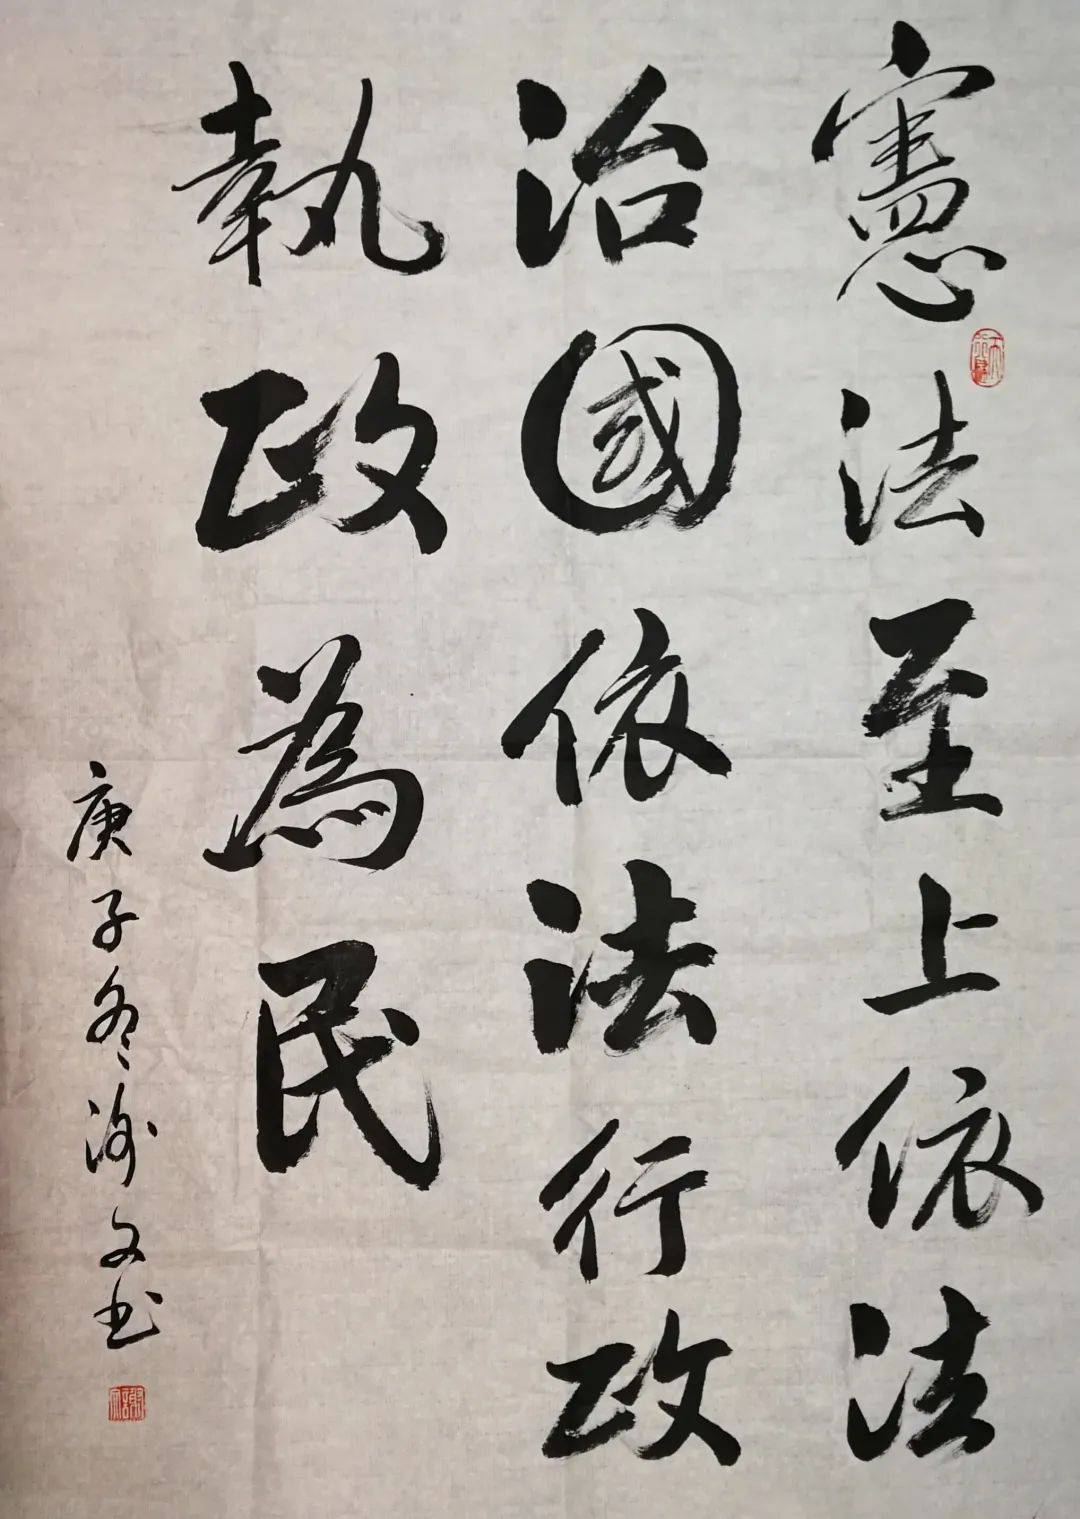 憲法至上依法
治國依法行政
執政為民
庚子冬谢文书